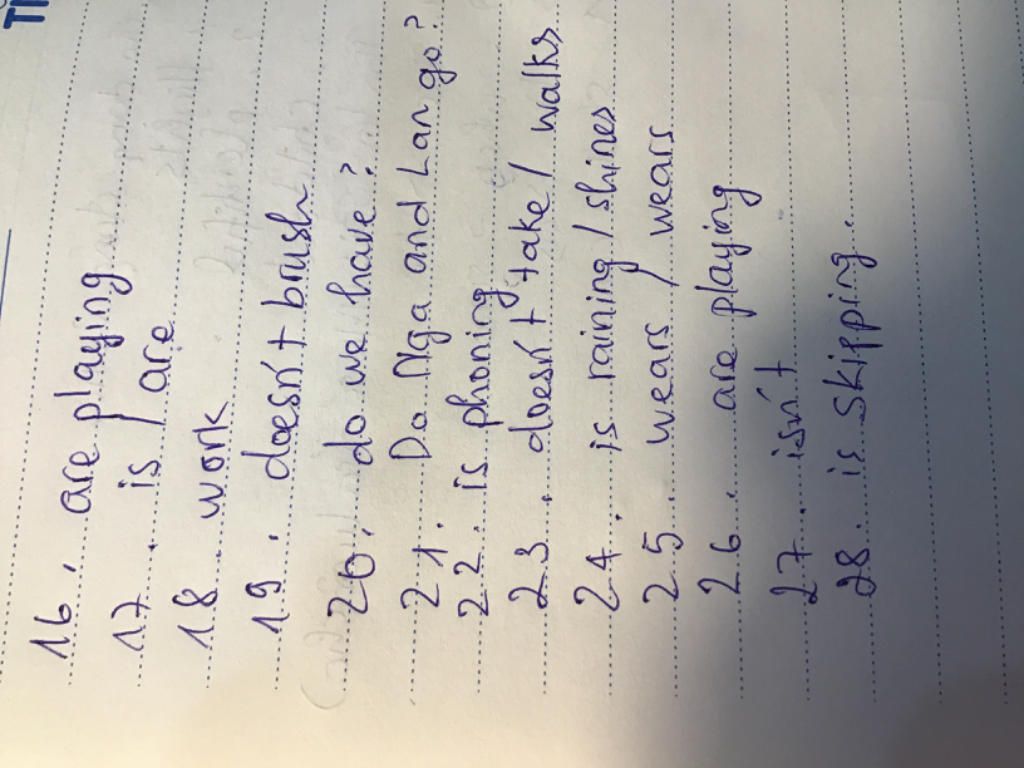 16. are playing
17. is / are
18 work
19. doesn't brush
20. do we have?
21. Do Nga and Lan go?
22. is phoning
23. doesn't take / walks
24. is raining / shines
25. wears / wears
26. are playing
27. isn't
28. is skipping.